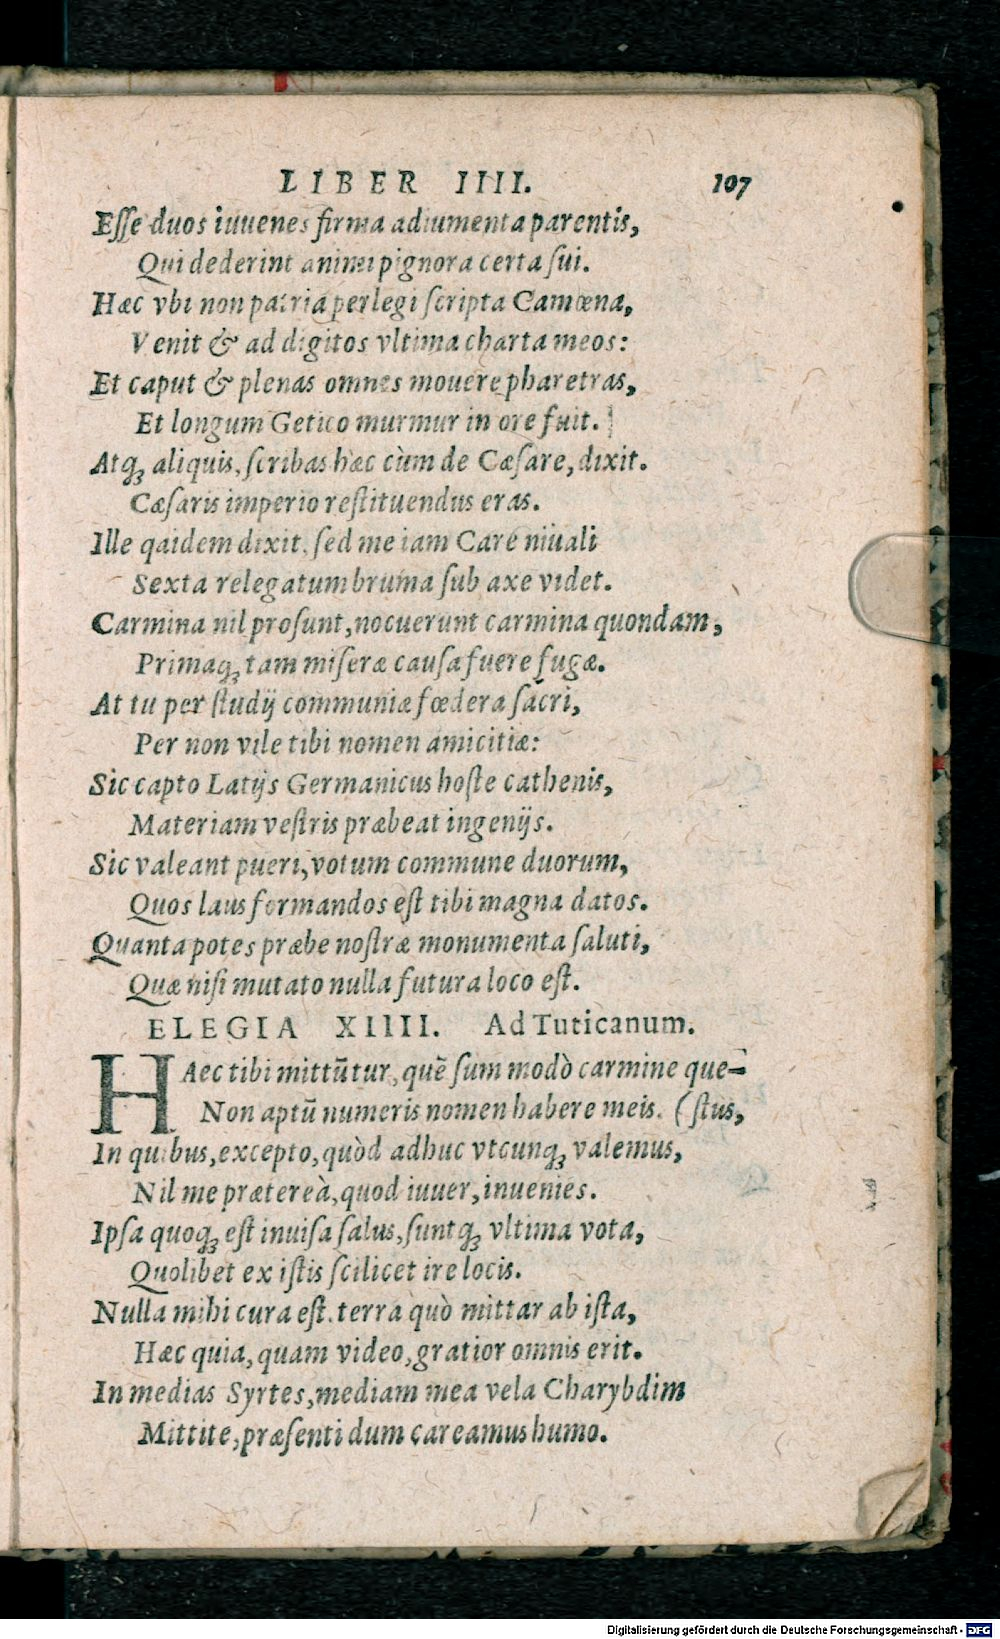 LIBER IIII. 107
Esse duos iuuenes firma adiumenta parentis,
Qui dederint animi pignora certa sui.
Hæc vbi non patria perlegi scripta Camœna,
Venit & ad digitos vltima charta meos:
Et caput & plenas omnes mouere pharetras,
Et longum Getico murmur in ore fuit.
Atq; aliquis, scribas hæc cùm de Cæsare, dixit.
Cæsaris imperio restituendus eras.
Ille qaidem dixit, sed me iam Care niuali
Sexta relegatum bruma sub axe videt.
Carmina nil prosunt, nocuerunt carmina quondam,
Primaq; tam miseræ causa fuere fugæ.
At tu per studij communiæ fœdera sacri,
Per non vile tibi nomen amicitiæ:
Sic capto Latijs Germanicus hoste cathenis,
Materiam vestris præbeat ingenijs.
Sic valeant pueri, votum commune duorum,
Quos laus formandos est tibi magna datos.
Quanta potes præbe nostræ monumenta saluti,
Quæ nisi mutato nulla futura loco est.
ELEGIA XIIII. Ad Tuticanum.
HAec tibi mittūtur, quē sum modò carmine que-
Non aptū numeris nomen habere meis. (stus,
In quibus, excepto, quòd adhuc vtcunq; valemus,
Nil me prætereà, quod iuuer, inuenies.
Ipsa quoq; est inuisa salus, suntq; vltima vota,
Quolibet ex istis scilicet ire locis.
Nulla mihi cura est, terra quò mittar ab ista,
Hæc quia, quam video, gratior omnis erit.
In medias Syrtes, mediam mea vela Charybdim
Mittite, præsenti dum careamus humo.
Digitalisierung gefördert durch die Deutsche Forschungsgemeinschaft - DFG